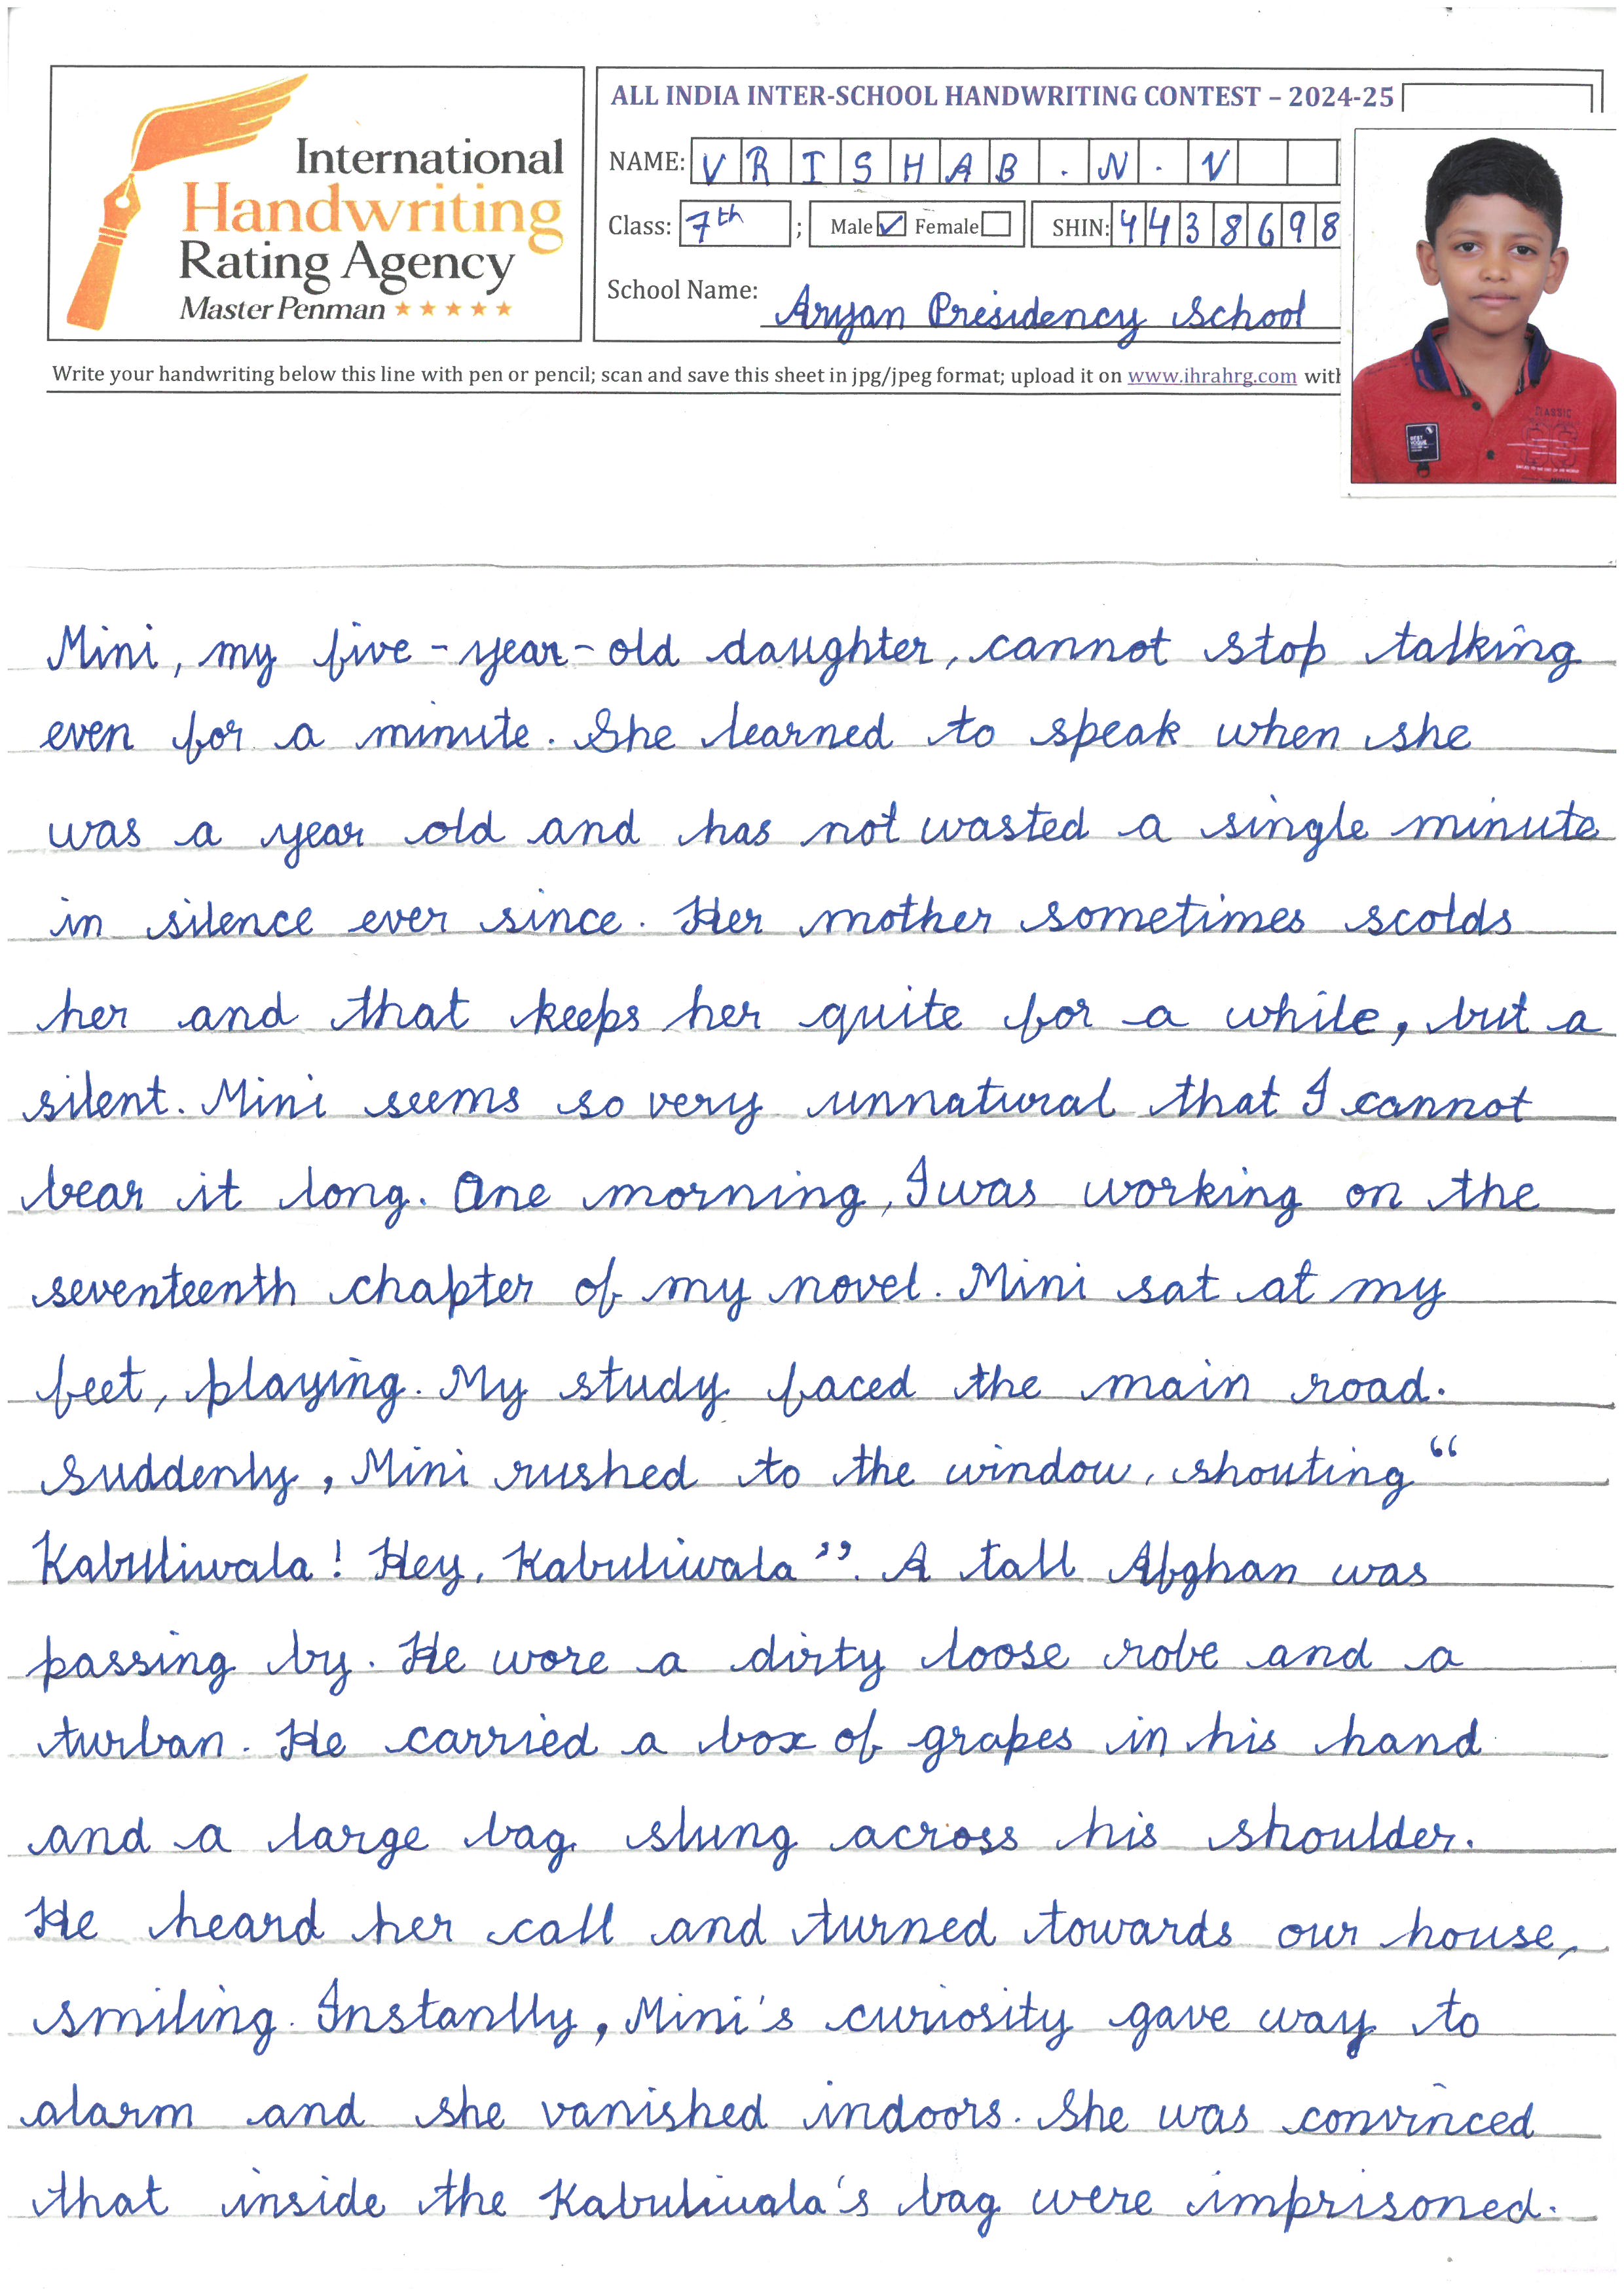 International
Handwriting
Rating Agency
Master Penman
ALL INDIA INTER-SCHOOL HANDWRITING CONTEST – 2024-25
NAME: VRISHAB.N.V
Class: 7th ; Male ☑ Female ☐ SHIN: 4438698
School Name: Aryan Presidency School
Write your handwriting below this line with pen or pencil; scan and save this sheet in jpg/jpeg format; upload it on www.ihrahrg.com with
Mini, my five-year-old daughter, cannot stop talking
even for a minute. She learned to speak when she
was a year old and has not wasted a single minute
in silence ever since. Her mother sometimes scolds
her and that keeps her quite for a while, but a
silent. Mini seems so very unnatural that I cannot
bear it long. One morning, I was working on the
seventeenth chapter of my novel. Mini sat at my
feet, playing. My study faced the main road.
Suddenly, Mini rushed to the window, shouting “
Kabuliwala! Hey, Kabuliwala”. A tall Afghan was
passing by. He wore a dirty loose robe and a
turban. He carried a box of grapes in his hand
and a large bag slung across his shoulder.
He heard her call and turned towards our house,
smiling. Instanlly, Mini's curiosity gave way to
alarm and she vanished indoors. She was convinced
that inside the Kabuliwala's bag were imprisoned.